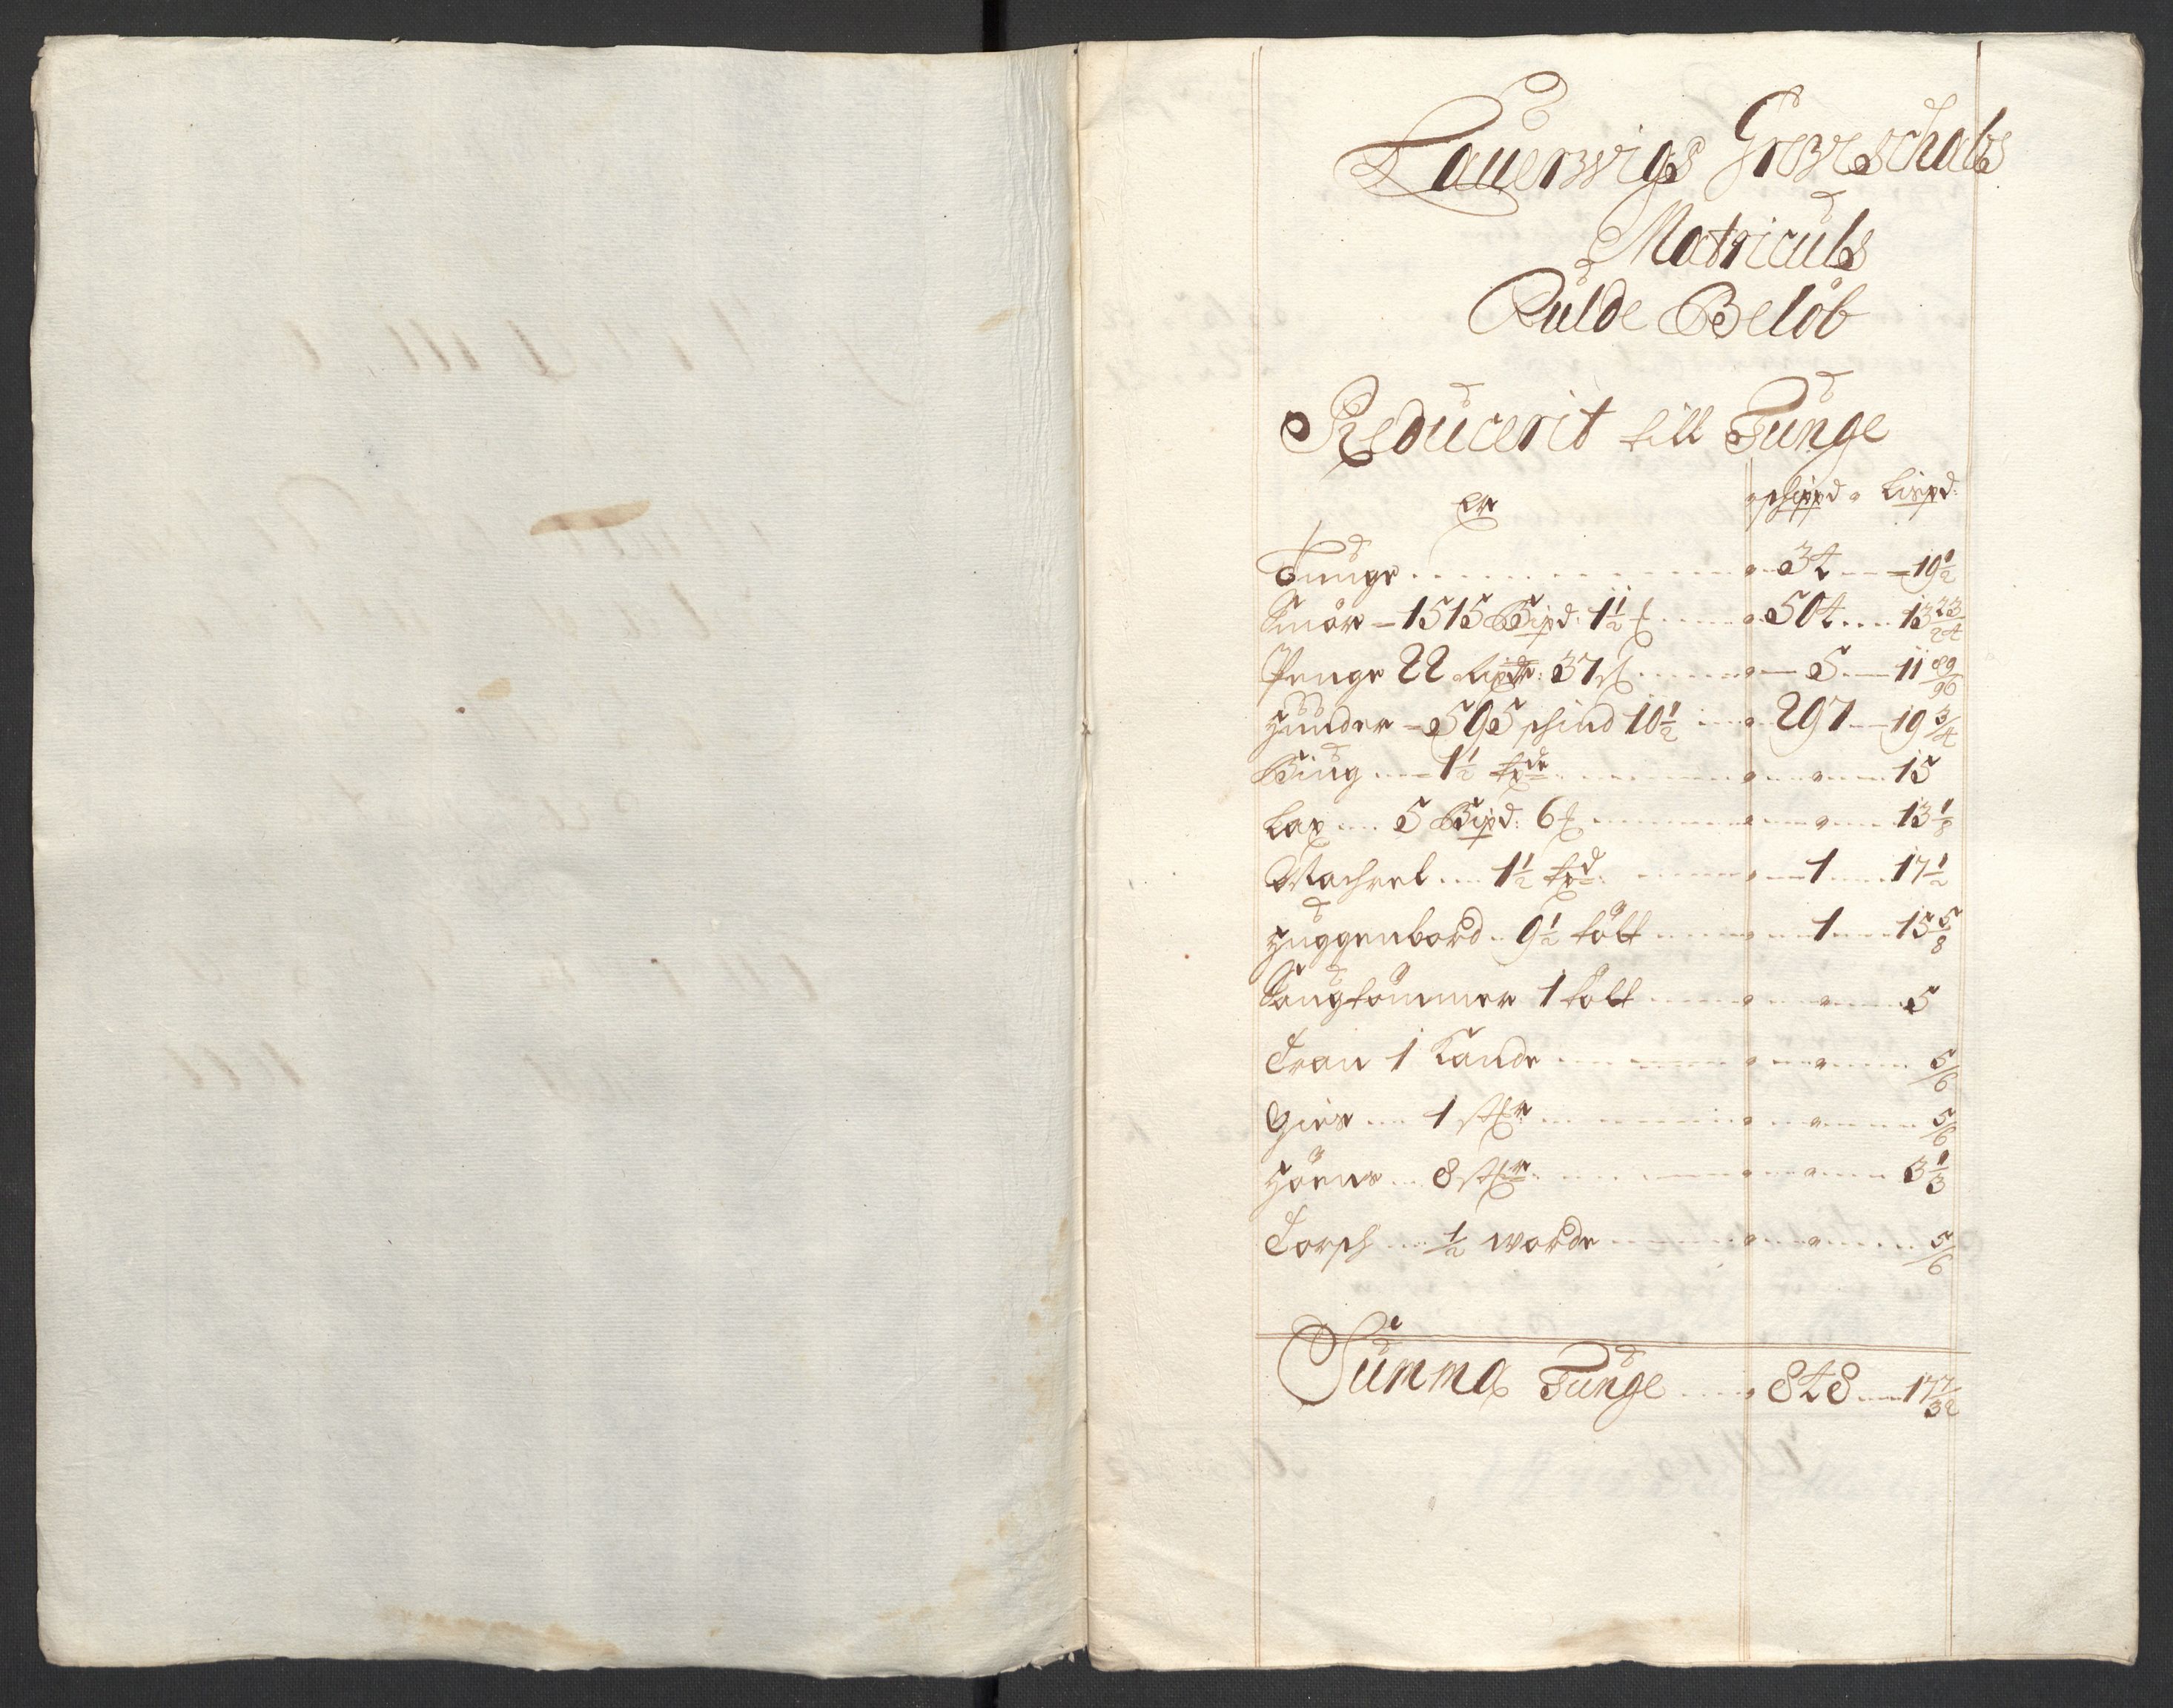 Lauerwigs Grevschabs
Matriculs
Rulde Beløb
Reducerit till Tunge
er schippd Lispd:
Tunge 34 19½
Smør 1515 Bispd: 1½ 504 13 23/24
Penge 22 37 5 11 89/96
Hunder 595 schind 10½ 297 19 3/4
Biug 1½ tde 15
Lax 5 Bispd: 6 13 1/8
Machrel 1½ td: 1 17½
Huggenbord 9½ tølt 1 15 5/8
Saugtømmer 1 tølt 5
Tran 1 Kande 5/6
Gies 1 5/6
Høens 8 3 1/3
Torsch ½ worde 5/6
Summa Tunge 848 17 7/32